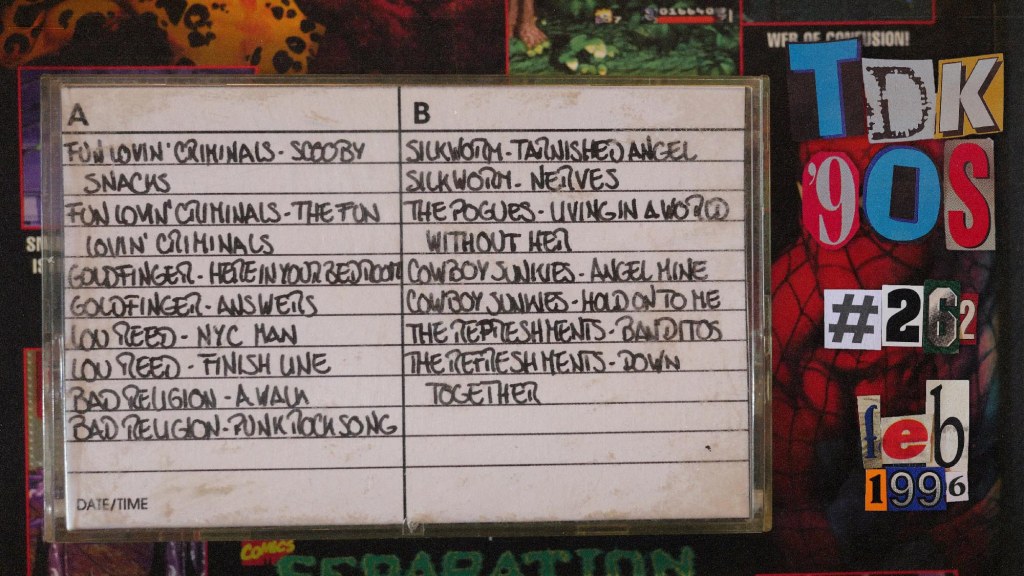 016640
WEB OF CONFUSION!
TDK
'90S
#262
feb
1996
A
FUN LOVIN' CRIMINALS - SCOOBY
SNACKS
FUN LOVIN' CRIMINALS - THE FUN
LOVIN' CRIMINALS
GOLDFINGER - HERE IN YOUR BEDROOM
GOLDFINGER - ANSWERS
LOU REED - NYC MAN
LOU REED - FINISH LINE
BAD RELIGION - A WALK
BAD RELIGION - PUNK ROCK SONG
DATE/TIME
B
SILKWORM - TARNISHED ANGEL
SILKWORM - NERVES
THE POGUES - LIVING IN A WORLD
WITHOUT HER
COWBOY JUNKIES - ANGEL MINE
COWBOY JUNKIES - HOLD ON TO ME
THE REFRESHMENTS - BANDITOS
THE REFRESHMENTS - DOWN
TOGETHER
COMICS
SEPARATION